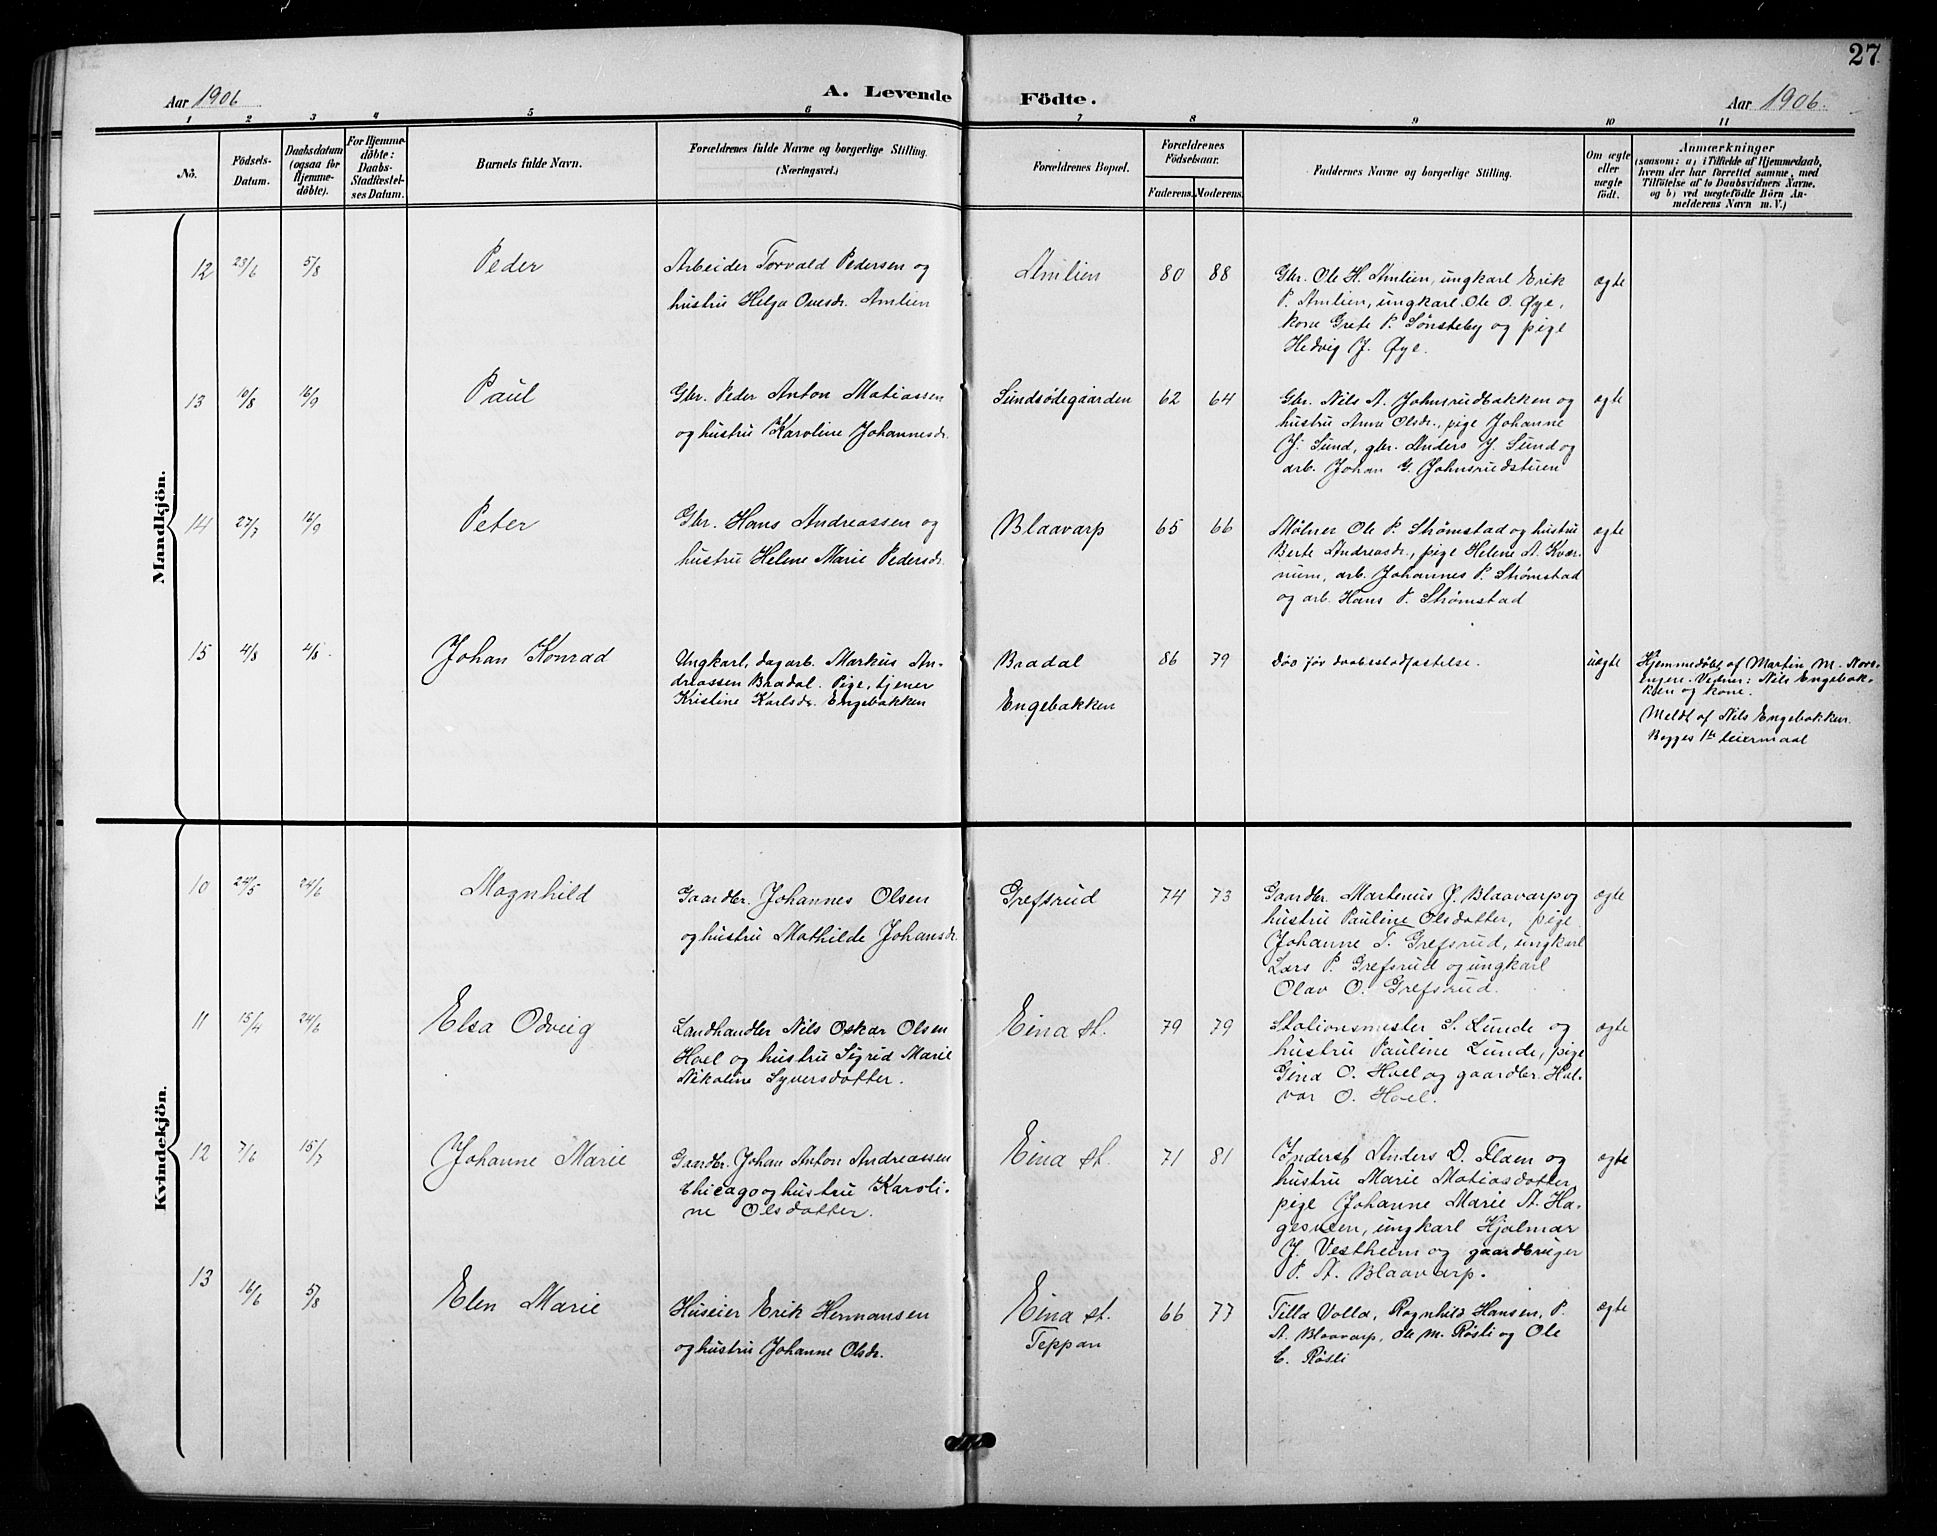 27
Aar 1906
A. Levende Födte.
Aar 1906.
1 2 3 4 5 6 7 8 9 10 11
No.
Födsels-
Datum.
Daabsdatum
(ogsaa for
Hjemme-
döbte).
For Hjemme-
döbte:
Daabs-
Stadfæstel-
ses Datum.
Barnets fulde Navn.
Forældrenes fulde Navne og borgerlige Stilling.
(Næringsvei.)
Forældrenes Bopæl.
Forældrenes
Födselsaar.
Faderens. Moderens.
Faddernes Navne og borgerlige Stilling.
Om ægte
eller
uægte
födt.
Anmærkninger
(saasom: a) i Tilfælde af Hjemmedaab,
hvem der har forrettet samme, med
Tilföielse af to Daabsvidners Navne,
og b) ved uægtefödte Börn An-
melderens Navn m. V.)
Mandkjön.
12 23/6 5/8 Peder
Arbeider Torvald Pedersen og
hustru Helga Ovesdr. Amlien
Amlien 80 88
Gbr. Ole H. Amlien, ungkarl Erik
P. Amlien, ungkarl Ole O. Øye,
kone Grete P. Sønsteby og pige
Hedvig J. Øye.
ægte
13 10/8 16/9 Paul
Gbr. Peder Anton Matiassen
og hustru Karoline Johannesdr.
Sundsødegaarden 62 64
Gbr. Nils A. Johnsrudbakken og
hustru Anne Olsdr., pige Johanne
J. Sund, gbr. Anders J. Sund og
arb. Johan G. Johnsrudstuen
ægte
14 27/7 16/9 Peter
Gbr. Hans Andreassen og
hustru Helene Marie Pedersdr.
Blaavarp 65 66
Mølner Ole P. Strømstad og hustru
Berte Andreasdr., pige Helene A. Kvær-
num, arb. Johannes P. Strømstad
og arb. Hans P. Strømstad
ægte
15 4/8 4/8. Johan Konrad
Ungkarl, dagarb. Markus An-
dreassen Bradal. Pige, tjener
Kristine Karlsdr. Engebakken
Bradal
Engebakken
86 79
Død før daabsstadfæstelse.
uægte
Hjemmedøbt af Martin M. Nors-
engen. Vidner: Nils Engebak-
ken og kone.
Meldt af Nils Engebakken.
Begges 1ste leiermaal
Kvindekjön.
10 24/5 24/6 Magnhild
Gaardbr. Johannes Olsen
og hustru Mathilde Johansdr.
Grefsrud 74 73
Gaardbr. Martenius J. Blaavarp og
hustru Pauline Olsdatter, pige
Johanne T. Grefsrud, ungkarl
Lars P. Grefsrud og ungkarl
Olav O. Grefsrud.
ægte
11 15/4 24/6 Elsa Odveig
Landhandler Nils Oskar Olsen
Hoel og hustru Sigrid Marie
Nikoline Syversdatter.
Eina st. 79 79
Stationsmester S. Lunde og
hustru Pauline Lunde, pige
Gina O. Hoel og gaardbr. Hal-
var O. Hoel.
ægte
12 7/6 15/7 Johanne Marie
Gaardbr. Johan Anton Andreassen
Chicago og hustru Karoli-
ne Olsdatter.
Eina st. 71 81
Inderst Anders D. Floen og
hustru Marie Matiasdatter,
pige Johanne Marie A. Ha-
gesveen, ungkarl Hjalmar
J. Vestheim og gaardbruger
P. A. Blaavarp.
ægte
13 16/6 5/8 Elen Marie
Huseier Erik Hermansen
og hustru Johanne Olsdr.
Eina st.
Teppan
66 77
Tilla Volla, Ragnhild Hansen, P.
A. Blaavarp, Ole M. Røsli og Ole
C. Røsli
ægte